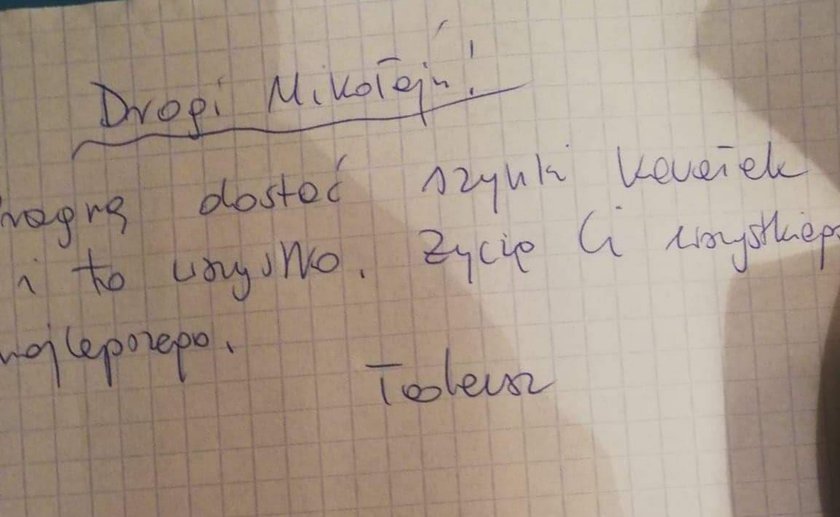 Drogi Mikołaju!
Pragnę dostać szynki kawałek
i to wszystko. Życię Ci wszystkiego
najlepszego.
Tadeusz